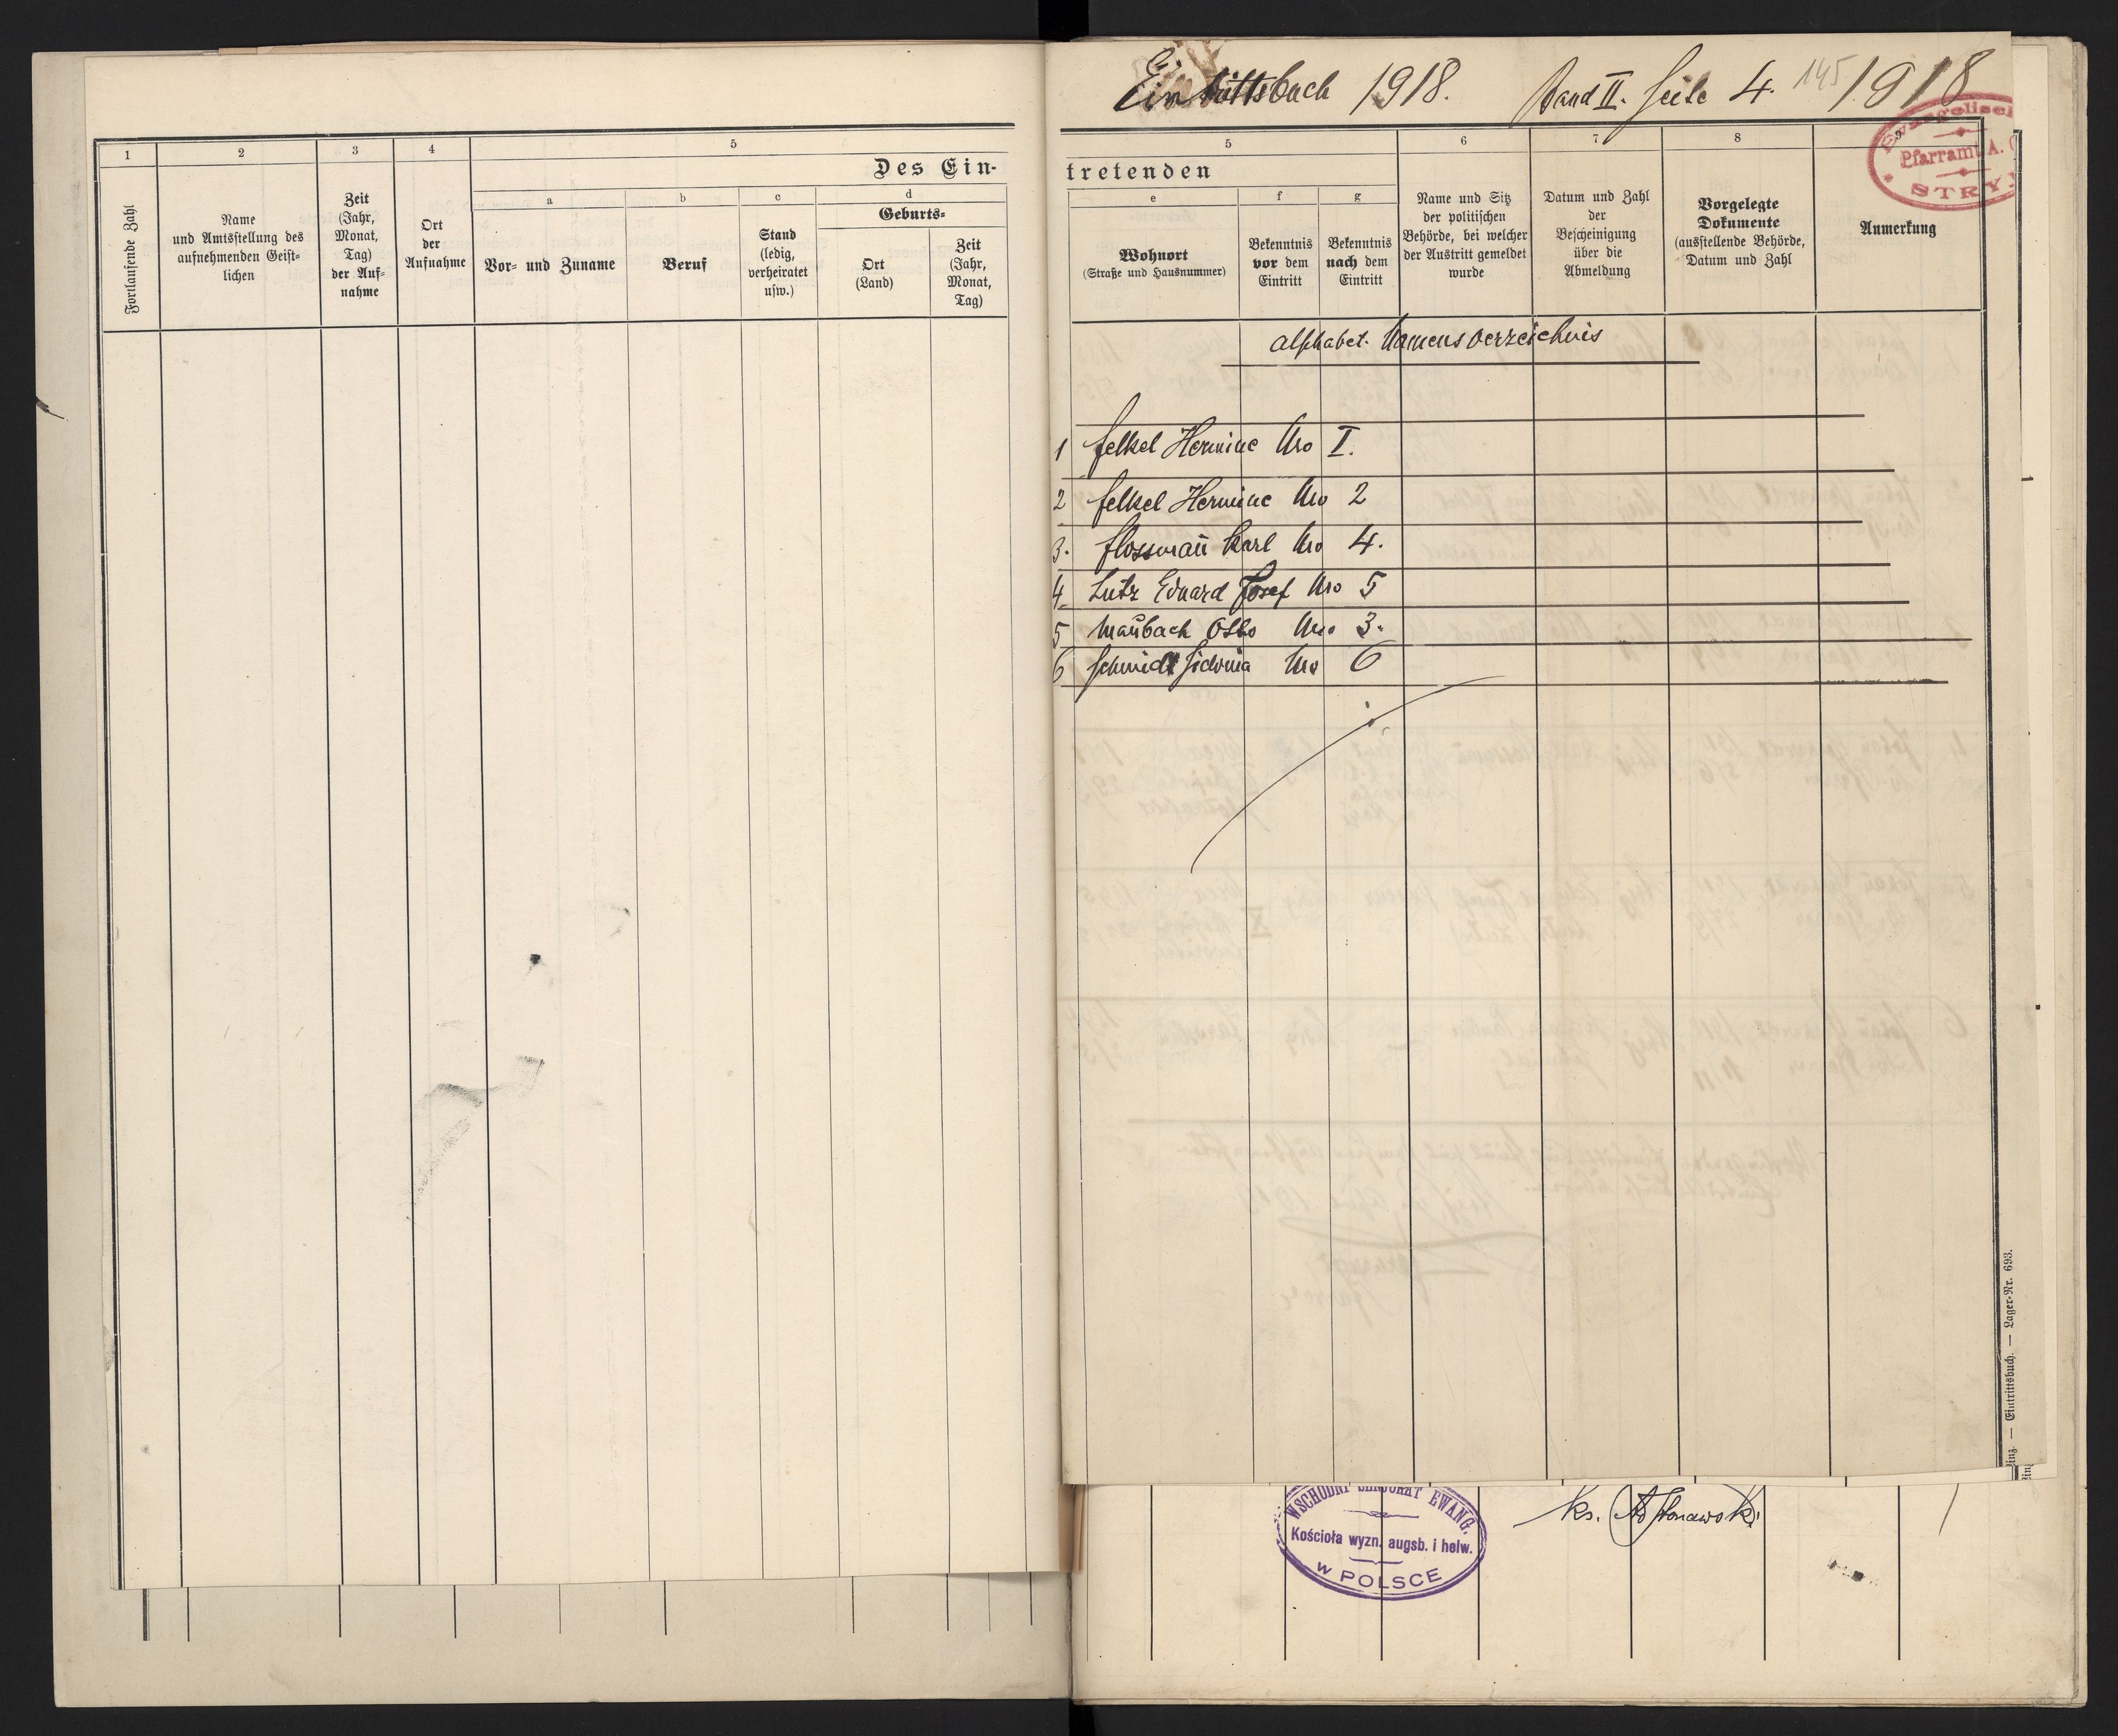 Eintrittsbuch 1918. Band II. Seite 4. 145 1918
Evangelisch
Pfarramt A.
STRY
1
2
3
4
5
Des Ein-
Fortlaufende Zahl
Name
und Amtsstellung des
aufnehmenden Geist-
lichen
Zeit
(Jahr,
Monat,
Tag)
der Auf-
nahme
Ort
der
Aufnahme
a
Vor- und Zuname
b
Beruf
c
Stand
(ledig,
verheiratet
usw.)
d
Geburts-
Ort
(Land)
Zeit
(Jahr,
Monat,
Tag)
5
tretenden
e
Wohnort
(Straße und Hausnummer)
f
Bekenntnis
vor dem
Eintritt
g
Bekenntnis
nach dem
Eintritt
6
Name und Sitz
der politischen
Behörde, bei welcher
der Austritt gemeldet
wurde
7
Datum und Zahl
der
Bescheinigung
über die
Abmeldung
8
Vorgelegte
Dokumente
(ausstellende Behörde,
Datum und Zahl
9
Anmerkung
alphabet. Namensverzeichnis
1 Felkel Hermine Nro I.
2 Felkel Hermine Nro 2
3. Flossmañ Karl Nro 4.
4. Lutz Eduard Josef Nro 5
5 Maŭbach Otto Nro 3.
6 Schmidt Sidonia Nro 6
— Eintrittsbuch. — Lager-Nr. 693.
WSCHODNI SENJORAT EWANG.
Kościoła wyzn. augsb. i helw.
w POLSCE
ks.